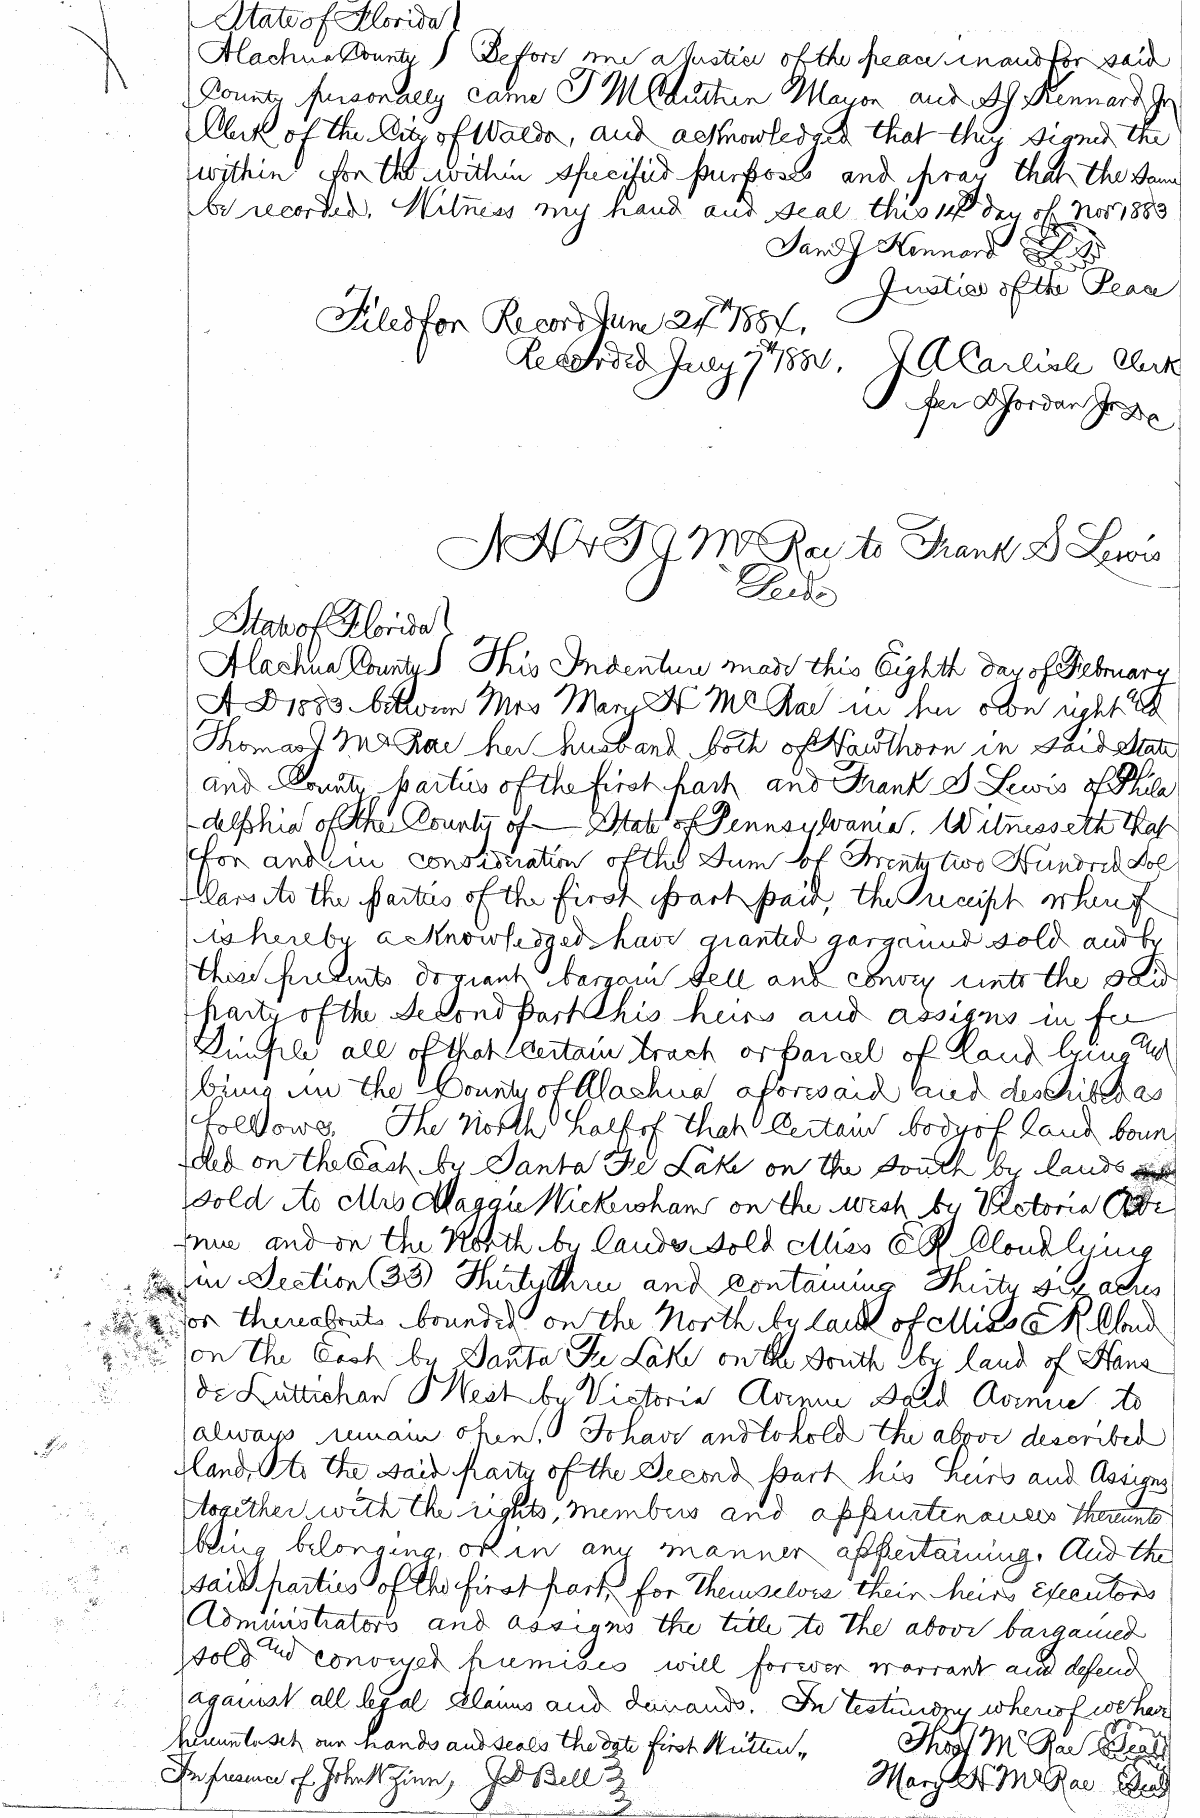 State of Florida }
Alachua County } Before me a Justice of the peace in and for said
County personally came T McCauthen Mayor and SJ Kennard Jr
Clerk of the City of Waldo, and acknowledged that they signed the
within for the within specified purposes and pray that the same
be recorded. Witness my hand and seal this 14th day of Nov 1883
Saml J Kennard LS
Justice of the Peace
Filed for Record June 24th 1884.
Recorded July 7th 1884. J A Carlisle Clerk
per D Jordan Jr DC
to Frank S Lewis
Deed
State of Florida }
Alachua County } This Indenture made this Eighth day of February
A D 1883 between Mrs Mary H McRae in her own right and
Thomas J McRae her husband both of Hawthorn in said State
and County parties of the first part and Frank S Lewis of Phila
delphia of the County of — State of Pennsylvania. Witnesseth that
for and in consideration of the Sum of Twenty two Hundred Dol
lars to the parties of the first part paid, the receipt whereof
is hereby acknowledged have granted gargained sold and by
these presents do grant bargain sell and convey unto the said
party of the Second part his heirs and assigns in fee
Simple all of that certain tract or parcel of land lying and
being in the County of Alachua aforesaid and described as
follows. The North half of that Certain body of land boun
ded on the East by Santa Fe Lake on the south by lands
sold to Mrs Maggie Wickersham on the west by Victoria Ave
nue and on the North by lands sold Miss E R Cloud lying
in Section (33) Thirty three and containing Thirty six acres
or thereabouts bounded on the North by land of Miss E R Cloud
on the East by Santa Fe Lake on the South by land of Hans
de Luttichan West by Victoria Avenue said Avenue to
always remain open. To have and to hold the above described
land, to the said party of the Second part his heirs and Assigns
together with the rights, members and appurtenances thereunto
being belonging, or in any manner appertaining. And the
said parties of the first part, for themselves their heirs Executors
Administrators and assigns the title to the above bargained
sold and conveyed premises will forever warrant and defend
against all legal claims and demands. In testimony whereof we have
hereunto set our hands and seals the date first Written.,
Thos J McRae Seal
In presence of John W Zinn, J D Bell }
Mary H McRae Seal